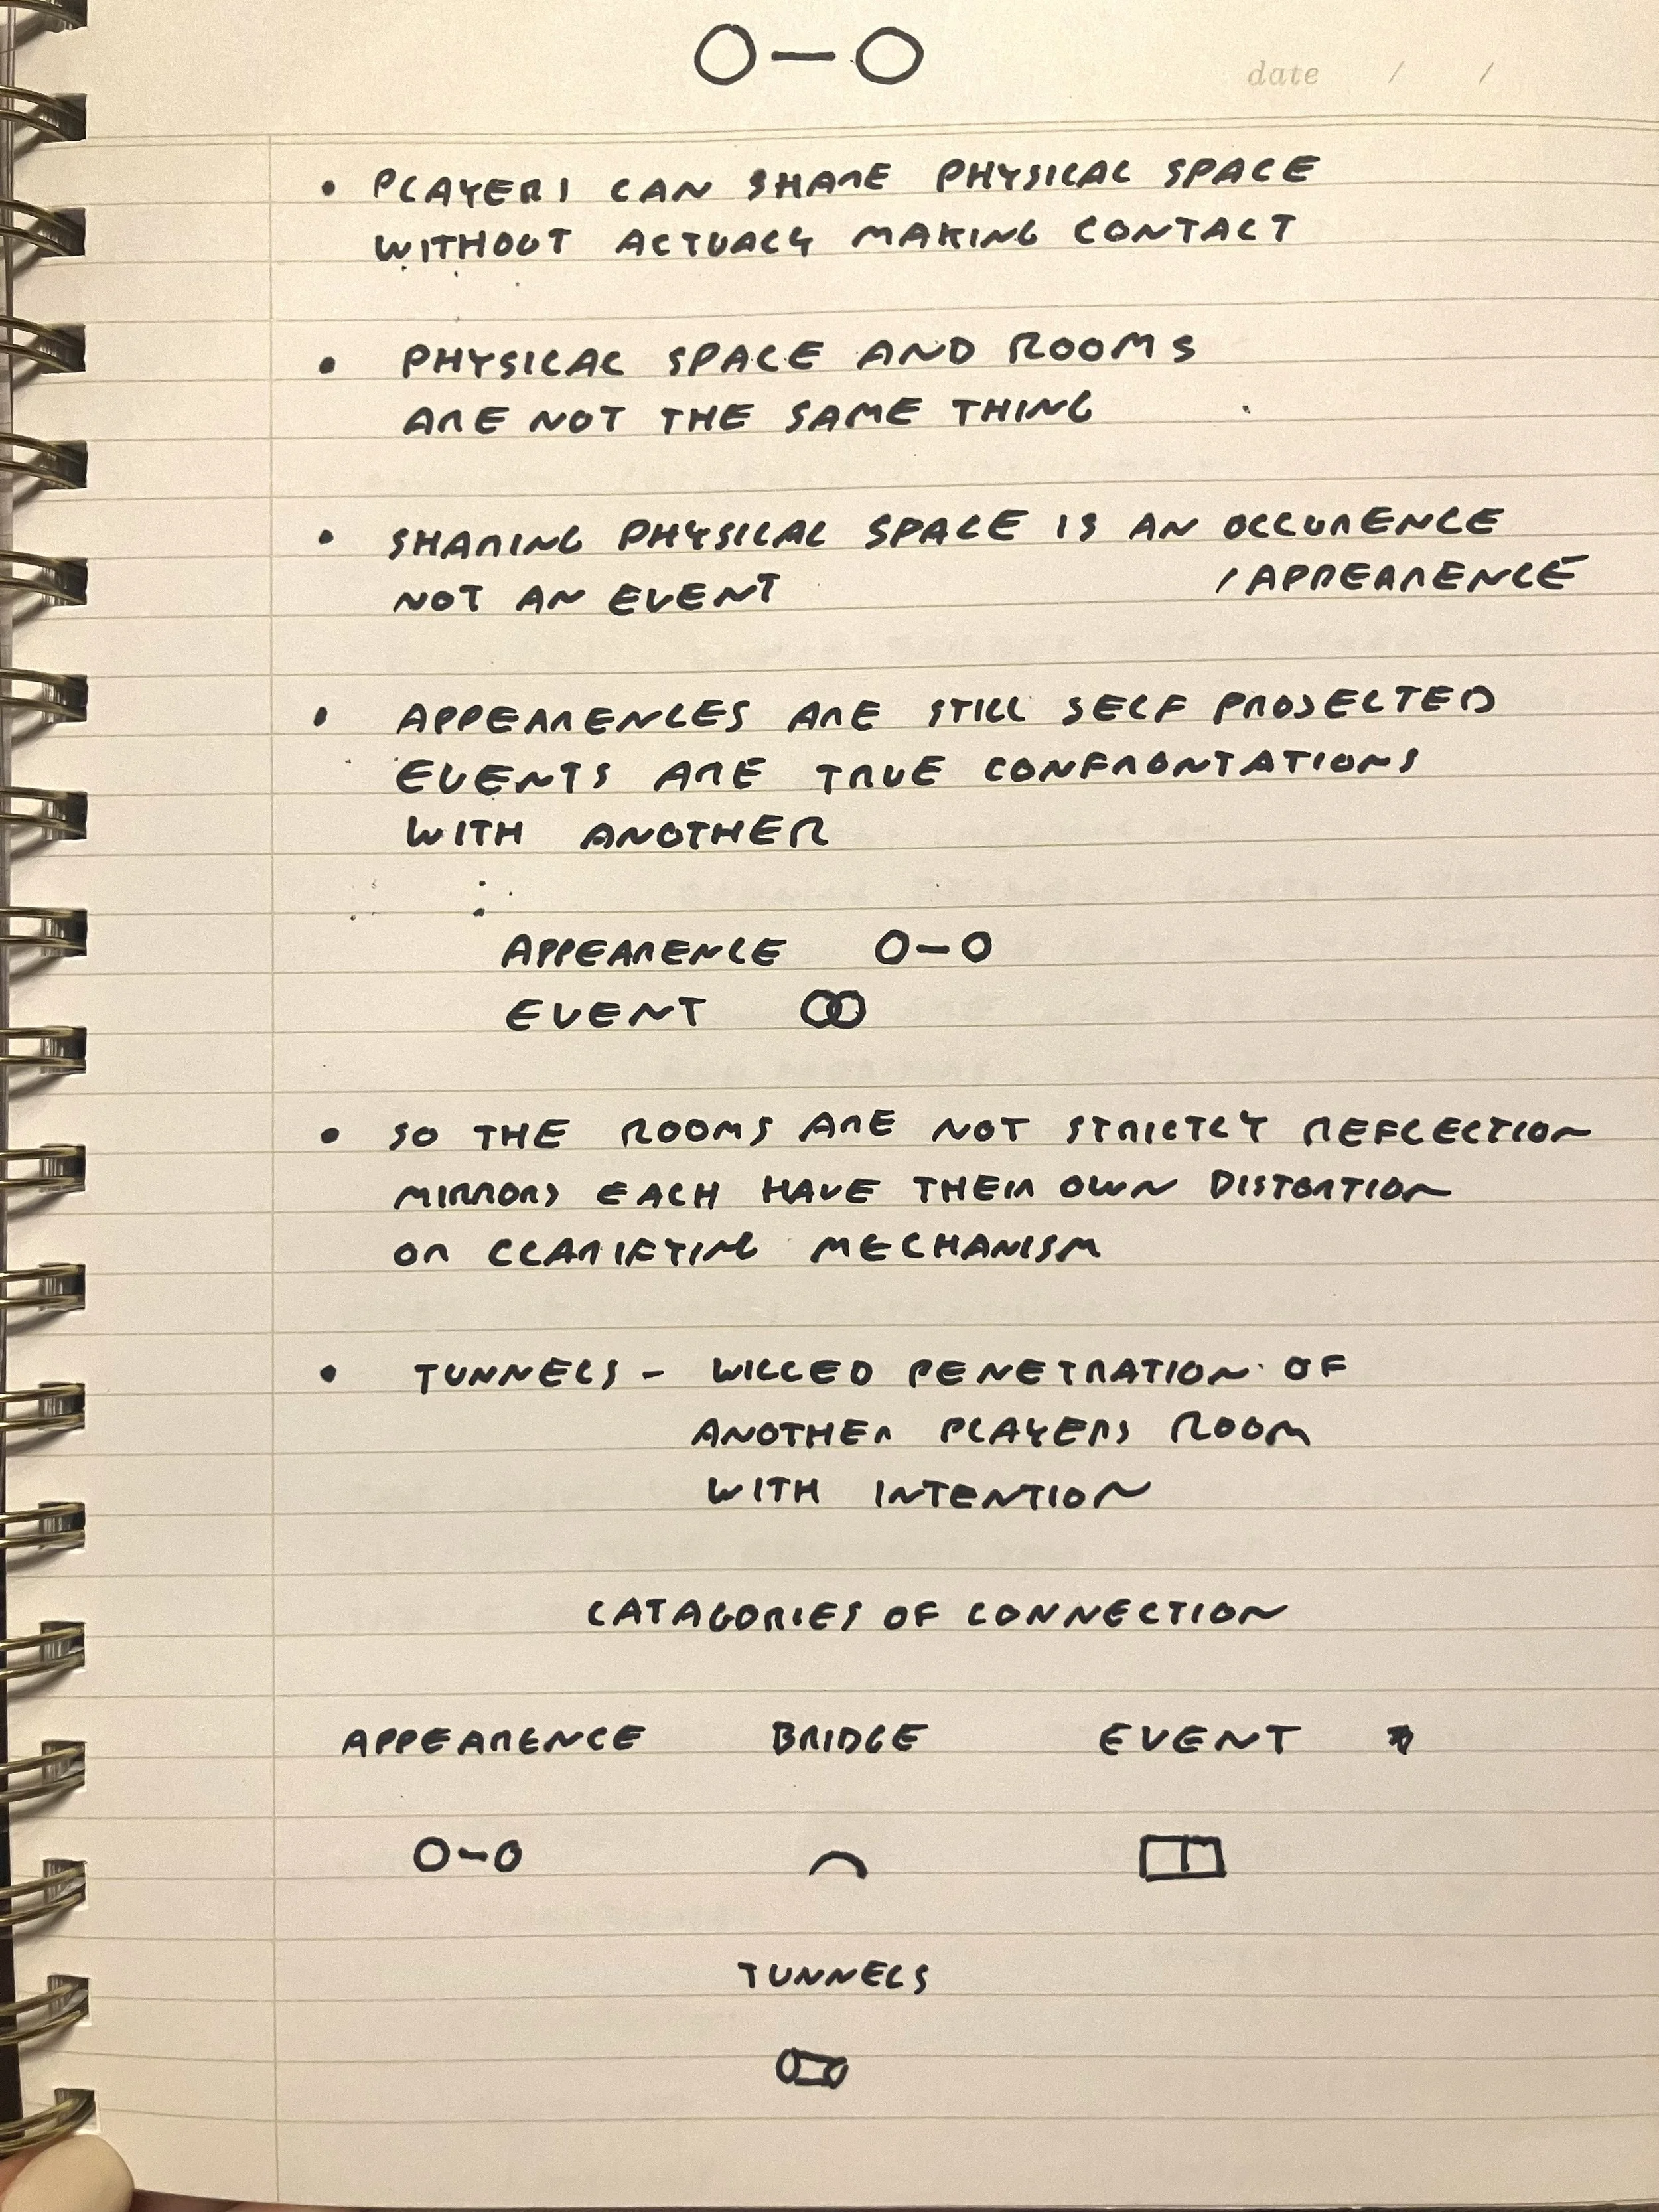 O-O
date / /
• PLAYERS CAN SHARE PHYSICAL SPACE
WITHOUT ACTUALY MAKING CONTACT
• PHYSICAL SPACE AND ROOMS
ARE NOT THE SAME THING
• SHARING PHYSICAL SPACE IS AN OCCURENCE
/APPEARENCE
NOT AN EVENT
• APPEARENCES ARE STILL SELF PROJECTED
EVENTS ARE TRUE CONFRONTATIONS
WITH ANOTHER
APPEARENCE O-O
EVENT
• SO THE ROOMS ARE NOT STRICTLY REFLECTION
MIRRORS EACH HAVE THEIR OWN DISTORTION
OR CLARIFYING MECHANISM
• TUNNELS - WILLED PENETRATION OF
ANOTHER PLAYERS ROOM
WITH INTENTION
CATAGORIES OF CONNECTION
APPEARENCE BRIDGE EVENT
O-O
TUNNELS